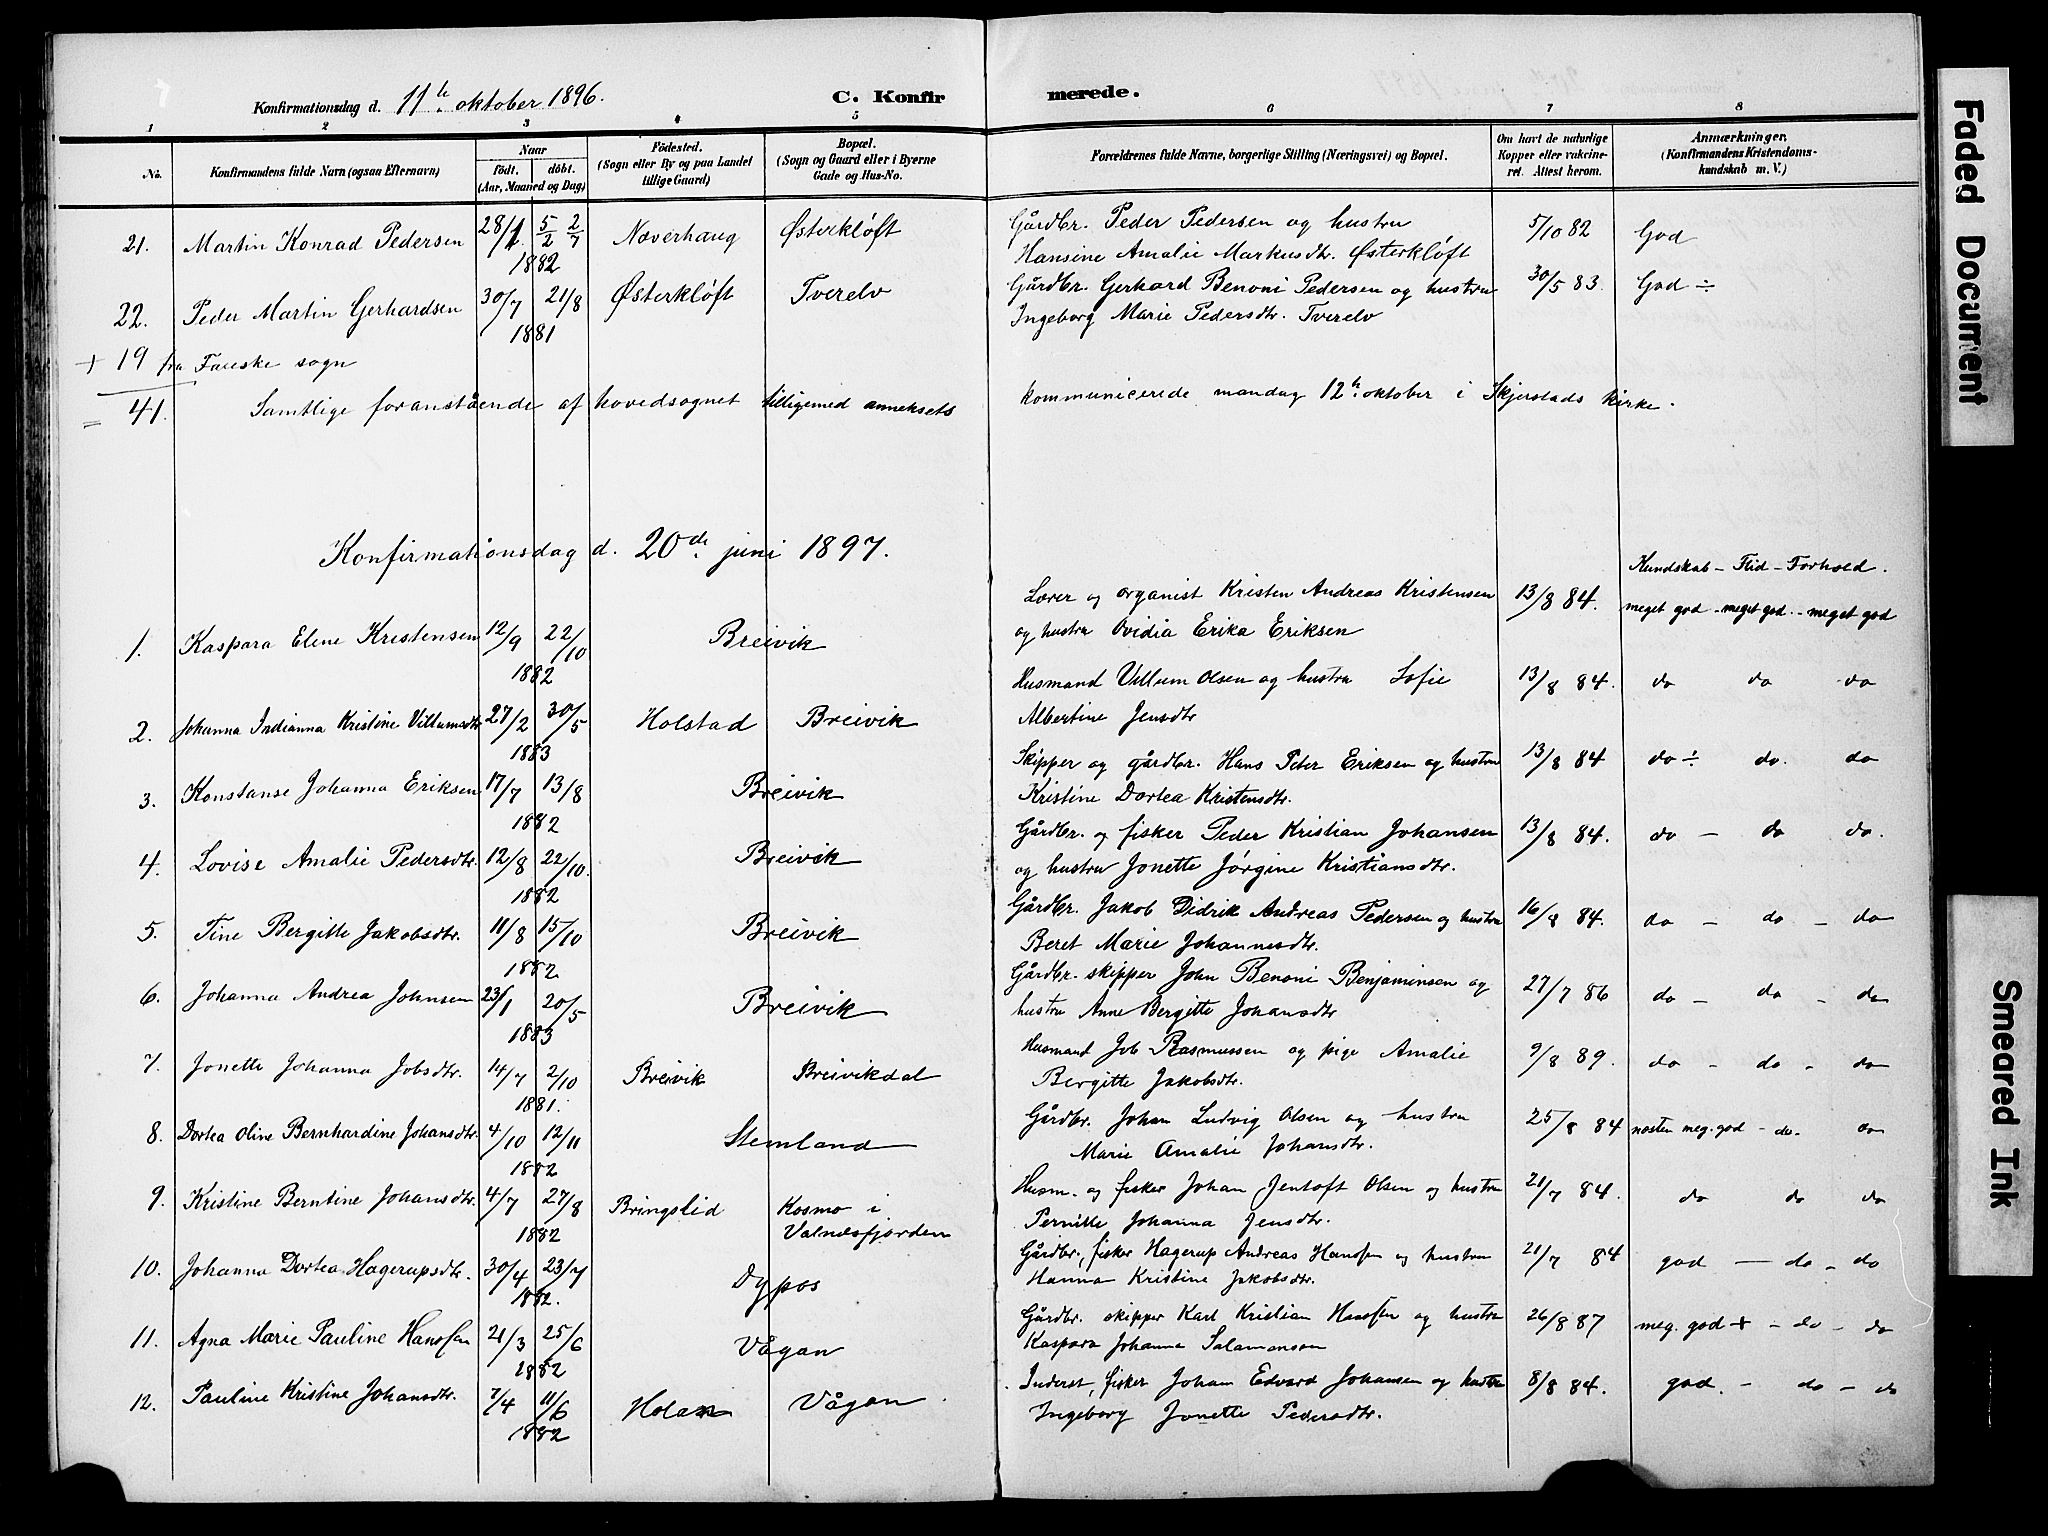 Konfirmationsdag d. 11te oktober 1896. C. Konfirmerede.
1 2 3 4 5 6 7 8
No. Konfirmandens fulde Navn (ogsaa Efternavn) Naar født. døbt. (Aar, Maaned og Dag) Fødested. (Sogn eller By og paa Landet tillige Gaard) Bopæl. (Sogn og Gaard eller i Byerne Gade og Hus-No. Forældrenes fulde Navne, borgerlige Stilling (Næringsvei) og Bopæl. Om havt de naturlige Kopper eller vakcineret. Attest herom. Anmærkninger. (Konfirmandens Kristendomskundskab m. V.)
21. Martin Konrad Pedersen 28/1 5/2 2/7 1882 Næverhaug Østerkløft Gårdbr. Peder Pedersen og hustru 5/10 82 God
Hansine Amalie Markusdtr. Østerkløft
22. Peder Martin Gerhardsen 30/7 21/8 1881 Østerkløft Tverelv Gårdbr. Gerhard Benoni Pedersen og hustru 30/5 83. God ÷
Ingeborg Marie Pedersdtr. Tverelv
+ 19 fra Fauske sogn
= 41. Samtlige foranstående af hovedsognet tilligemed anneksets kommunicerede mandag 12te oktober i Skjerstads kirke.
Konfirmationsdag d. 20de juni 1897.
Kundskab - Flid - Forhold.
1. Kaspara Elene Kristensen 12/9 22/10 1882 Breivik Lærer og organist Kristen Andreas Kristensen 13/8 84. meget god - meget god. - meget god
og hustru Ovidia Erika Eriksen
2. Johanna Indianna Kristine Villumsdtr. 27/2 30/5 1883 Holstad Breivik Husmand Villum Olsen og hustru Sofie 13/8 84. do do do
Albertine Jensdtr
3. Konstanse Johanna Eriksen 17/7 13/8 1882 Breivik Skipper og gårdbr. Hans Peter Eriksen og hustru 13/8 84 do ÷ do. do
Kristine Dortea Kristensdtr.
4. Lovise Amalie Pedersdtr. 12/8 22/10. 1882 Breivik Gårdbr. og fisker Peder Kristian Johansen 13/8 84. do - do do.
og hustru Jonette Jørgine Kristiansdtr.
5. Tine Bergitte Jakobsdtr. 11/8 15/10 1882 Breivik Gårdbr. Jakob Didrik Andreas Pedersen og hustru 16/8 84. do - do - do
Beret Marie Johannesdtr.
6. Johanna Andrea Johnsen 23/1 20/5 1883 Breivik Gårdbr. skipper John Benoni Benjaminsen og 27/7 86 do - do - do
hustru Anne Bergitte Johansdtr
7. Jonette Johanna Jobsdtr. 14/7 2/10 1881. Breivik Breivikdal Husmand Job Rasmussen og pige Amalie 9/8 89. do - do - do
Bergitte Jakobsdtr.
8. Dortea Oline Bernhardine Johansdtr. 4/10 12/11 1882 Stemland Gårdbr. Johan Ludvig Olsen og hustru 25/8 84 næsten meg. god - do. do
Marie Amalie Johansdtr.
9. Kristine Berntine Johansdtr. 4/7 27/8 1882 Bringslid Kosmo i Valnæsfjorden Husm. og fisker Johan Jentoft Olsen og hustru 21/7 84. do do do
Pernille Johanna Jensdtr.
10. Johanna Dortea Hagerupsdtr. 30/4 23/7 1882. Dypos Gårdbr, fisker Hagerup Andreas Hansen og hustru 21/7 84 god - do - do
Hanna Kristine Jakobsdtr.
11. Agna Marie Pauline Hansen 21/3 25/6 1882 Vågan Gårdbr. skipper Karl Kristian Hansen og hustru 26/8 87 meg. god + - do - do
Kaspara Johanna Salamonsen
12. Pauline Kristine Johansdtr. 7/4 11/6 1882 Holan Vågan Inderst, fisker Johan Edvard Johansen og hustru 8/8 84. god. - do - do
Ingeborg Jonette Pedersdtr.
Faded Document
Smeared Ink